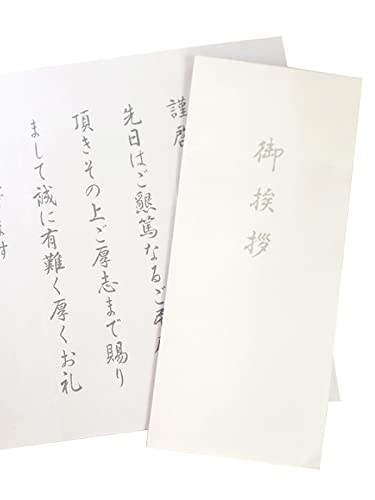 御挨拶
謹啓
先日はご懇篤なるご
頂きその上ご厚志まで賜り
まして誠に有難く厚くお礼
ます